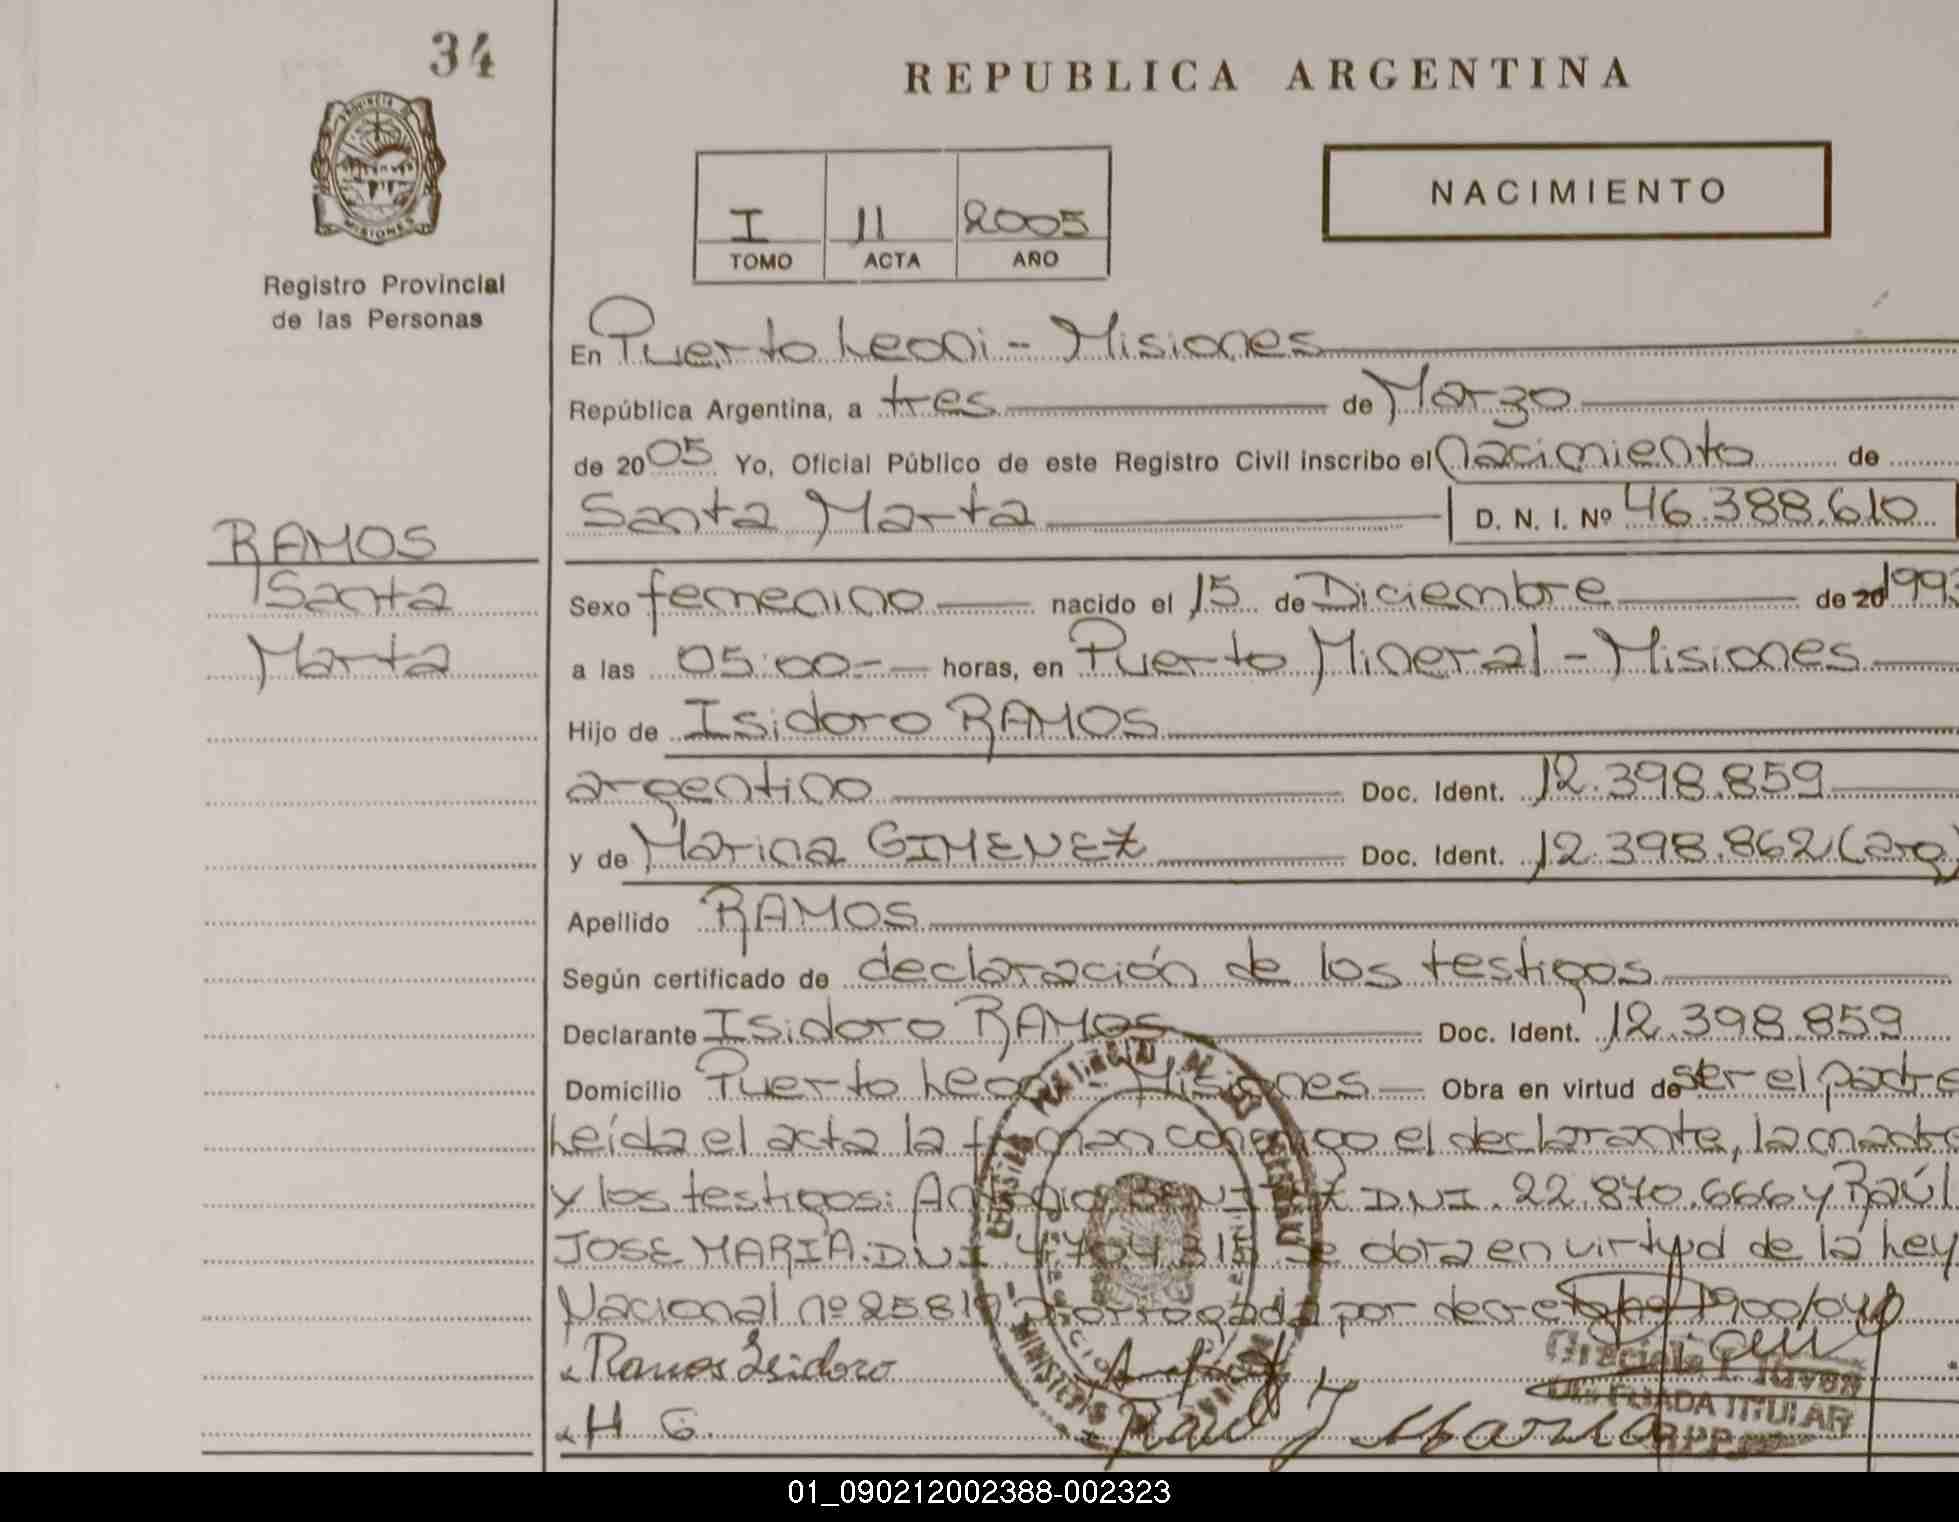 34
REPUBLICA ARGENTINA
NACIMIENTO
I 11 2005
TOMO ACTA AÑO
PROVINCIA DE
MISIONES
Registro Provincial
de las Personas
En Puerto Leoni - Misiones
República Argentina, a tres de Marzo
de 2005 Yo, Oficial Público de este Registro Civil inscribo el Nacimiento de
Santa Marta D. N. I. Nº 46.388.610
RAMOS
Santa
Marta
Sexo femenino nacido el 15 de Diciembre de 20 1993
a las 05:00- horas, en Puerto Mineral - Misiones
Hijo de Isidoro RAMOS
argentino Doc. Ident. 12.398.859
y de Marina GIMENEZ Doc. Ident. 12.398.862 (arg)
Apellido RAMOS
Según certificado de declaración de los testigos
Declarante Isidoro RAMOS Doc. Ident. 12.398.859
Domicilio Puerto Leoni - Misiones Obra en virtud de ser el padre
Leída el acta la firman conmigo el declarante, la madre
y los testigos: Antonio D.N.I. 22.870.666 y Raúl
JOSE MARIA. D.N.I. Se obra en virtud de la Ley
Nacional nº 25819 Prorrogada por decreto nº 1900/04
Ramos Isidoro
M G.
Raul J Maria
TITULAR
01_090212002388-002323